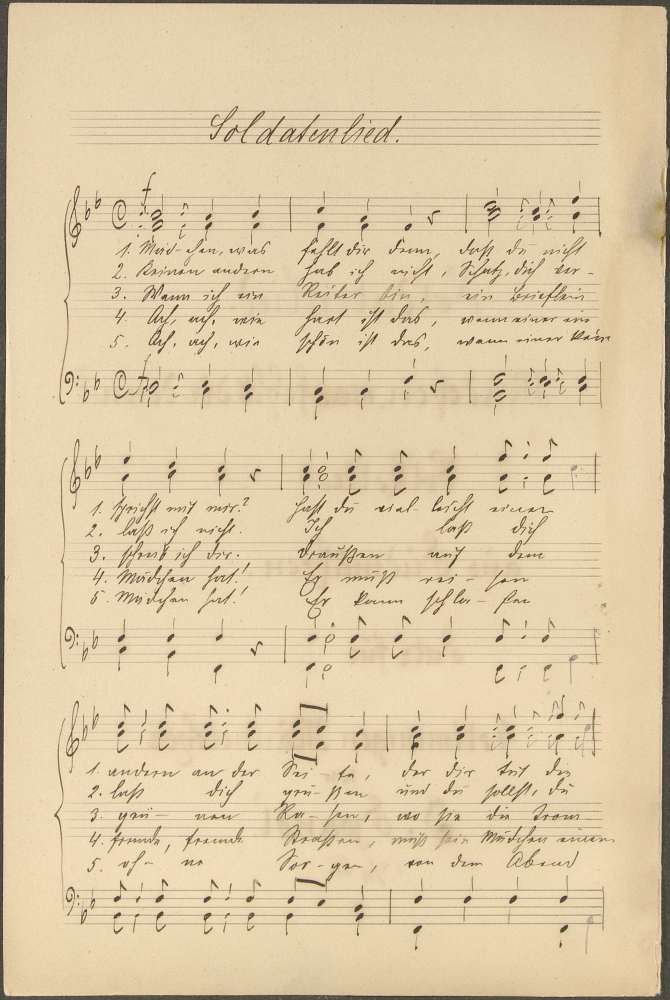 Soldatenlied.
f
1. Mäd-chen, was fehlt dir denn, daß du nicht
2. Keinen andern hab ich nicht, Schatz, dich ver-
3. Wann ich ein Reiter bin, ein Brieflein
4. Ach, ach, wie hart ist das, wenn einer ein
5. Ach, ach, wie schön ist das, wenn einer kein
f
1. spricht mit mir? Hast du viel-leicht einen
2. laß ich nicht. Ich laß dich
3. schreib ich dir. Draußen auf dem
4. Mädchen hat! Er muß rei-sen
5. Mädchen hat! Er kann schla-fen
1. andern an der Sei-te, der dir tut die
2. laß dich grü-ßen und du sollst, du
3. grü-nen Ra-sen, wo sie die Trom-
4. fremde, fremde Straßen, muß sein Mädchen einem
5. oh-ne Sor-gen, von dem Abend